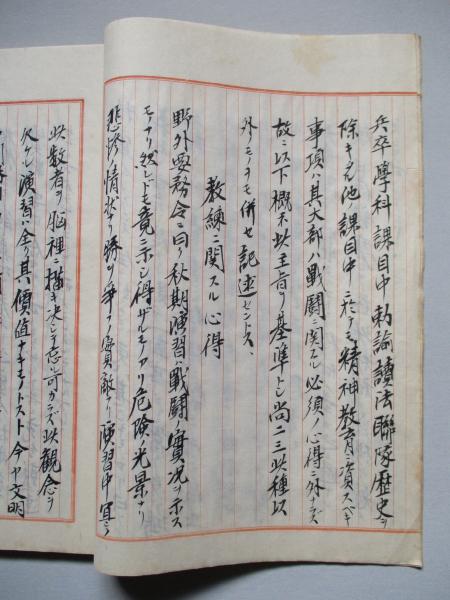 兵卒學科課目中勅諭讀法聯隊歴史ヲ
除キ其他ノ課目中ニ於テモ精神教育ニ資スベキ
事項ハ其大部ハ戰闘ニ関スル必須ノ心得ニ外ナラズ
故ニ以下概不此主旨ヲ基準トシ尚二三此種以
外ノモノヲモ併セ記述セントス、
教練ニ関スル心得
野外要務令ニ曰ク秋期演習ハ戰闘ノ實況ヲ示ス
モノナリ然レドモ竟ニ示シ得ザルモノアリ危険ノ光景ナリ
悲惨ノ情状ナリ勝ヲ争フノ實敵ナリ演習中宜シク
此数者ヲ脳裡ニ描キ決シテ忘ル可カラズ此観念ヲ
欠クノ演習ハ全ク其價値ナキモノトスト今ヤ文明